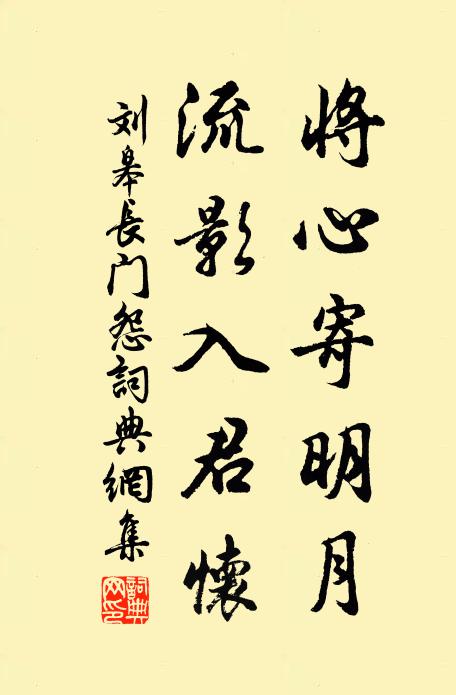 将心寄明月
流影入君懷
刘皋長门怨詞典網集
詞典网印